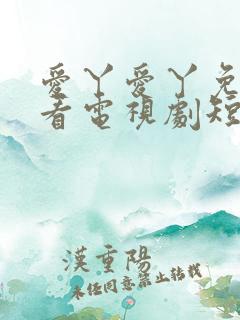 愛丫愛丫免
看電視劇短
漢重陽
未經同意禁止轉載